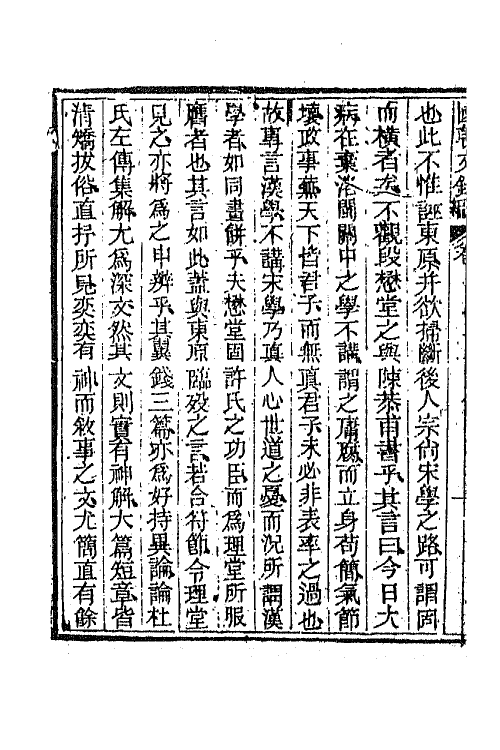 也此不惟誣東原并欲掃斷後人宗尙宋學之路可謂固
而橫者矣不觀段懋堂之與陳恭甫書乎其言曰今日大
病在棄洛閩關中之學不講謂之庸腐而立身苟簡氣節
壞政事蕪天下皆君子而無眞君子未必非表率之過也
故專言漢學不講宋學乃眞人心世道之憂而況所謂漢
學者如同畫餠乎夫懋堂固許氏之功臣而爲理堂所服
膺者也其言如此葢與東原臨歿之言若合符節令理堂
見之亦將爲之申辨乎其翼錢三篇亦爲好持異論論杜
氏左傳集解尤爲深文然其文則實有神解大篇短章皆
清矯拔俗直抒所見奕奕有神而敘事之文尤簡直有餘